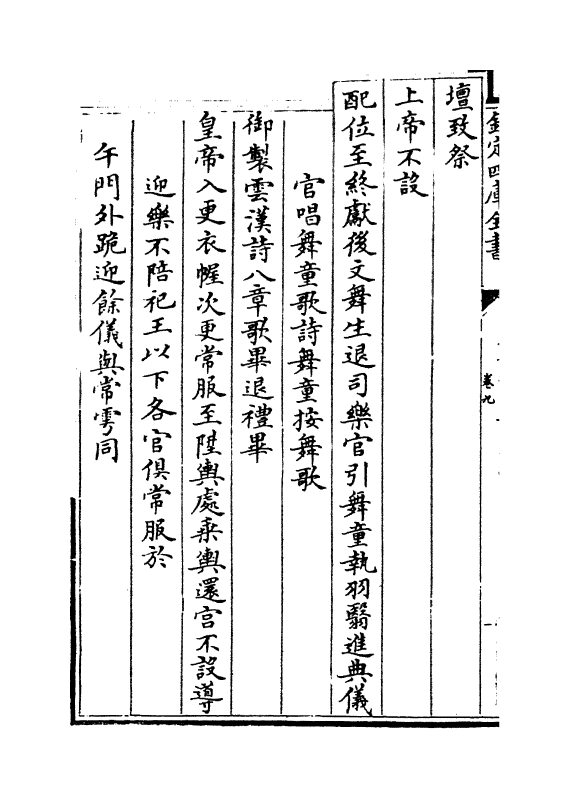 欽定四庫全書
卷九
壇致祭
上帝不設
配位至終獻後文舞生退司樂官引舞童執羽翳進典儀
官唱舞童歌詩舞童按舞歌
御製雲漢詩八章歌畢退禮畢
皇帝入更衣幄次更常服至陞輿處乘輿還宮不設導
迎樂不陪祀王以下各官俱常服於
午門外跪迎餘儀與常雩同